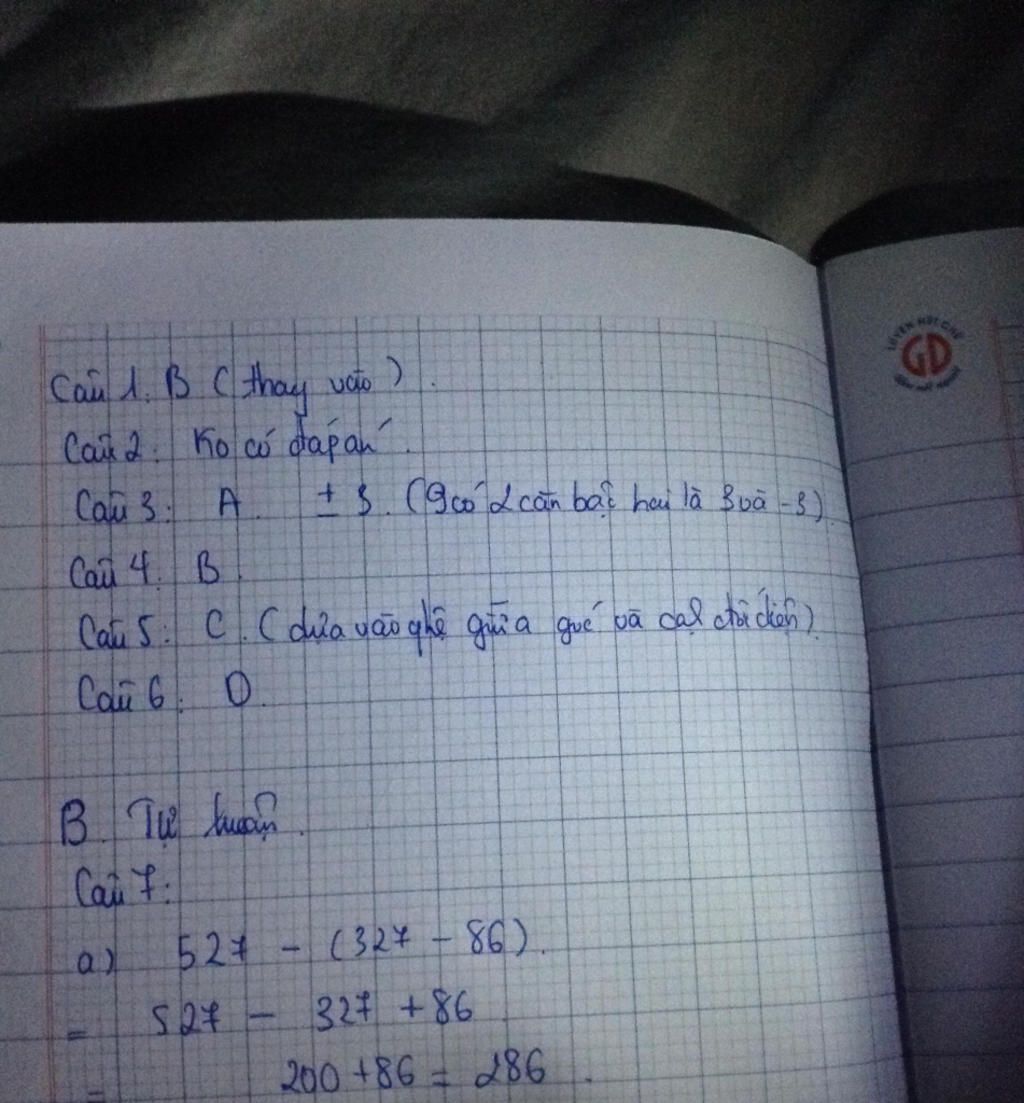 Câu 1. B (thay vào).
Câu 2: Ko có đáp án.
Câu 3: A. ± 3. (9 có 2 căn bậc hai là 3 và -3).
Câu 4. B.
Câu 5: C. (dựa vào qhệ giữa góc và cạnh đối diện).
Câu 6: D.
B. Tự luận.
Câu 7:
a) 527 - (327 - 86).
= 527 - 327 + 86
= 200 + 86 = 286.
GD